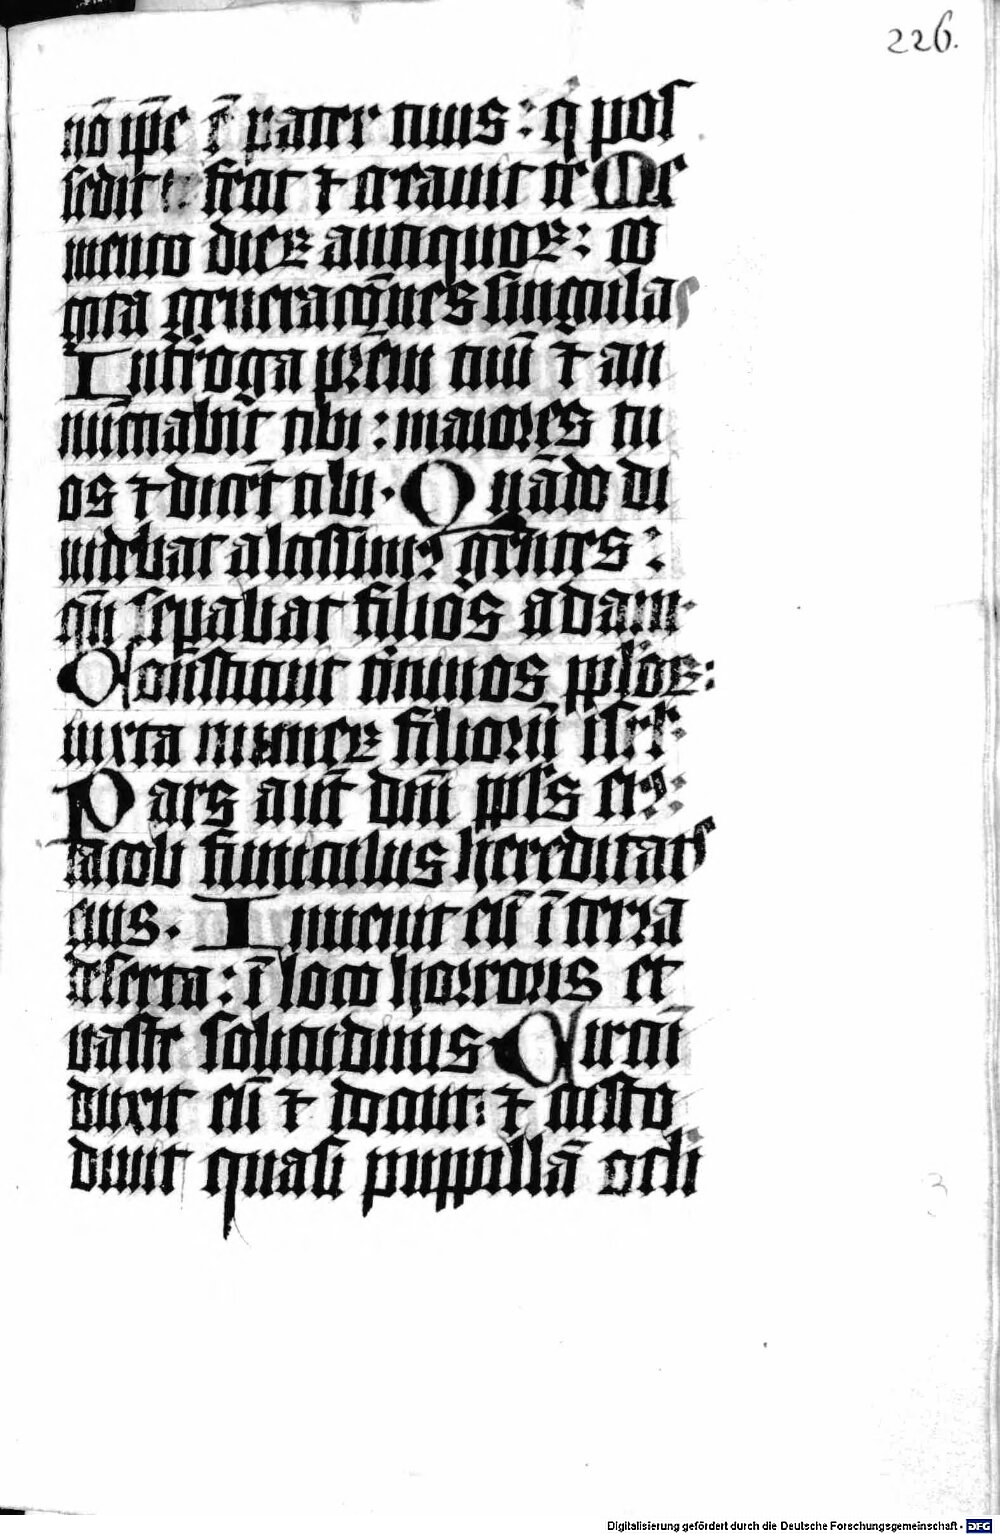 226.
nō ip̄e ē pater tuus : q̄ pos
sedit fecit ⁊ creauit te Me
mento dieꝝ antiquoꝝ : co
gita generacōnes singulas
Int̄roga pr̄em tuū ⁊ an
nūciabit tibi : maiores tu
os ⁊ dicēt tibi . Quādo di
uidebat altissimꝰ gentes :
qn̄ sepabat filios adam .
Constituit t̄minos ppl̄oꝝ :
iuxta numerꝝ filiorū isrl̓ :
Pars aut̄ dn̄i ppl̄s eiꝰ :
iacob funiculus hereditatis
eius . Inuenit eū ī terra
deserta : ī loco horroris et
vaste solitudinis Circū
duxit eū ⁊ docuit : ⁊ custo
diuit quasi puppillā oculi
Digitalisierung gefördert durch die Deutsche Forschungsgemeinschaft - DFG